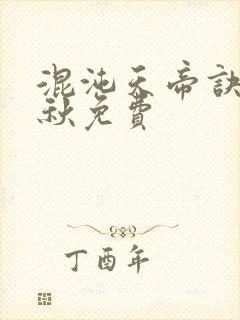 混沌天帝訣
秋免費
丁酉年